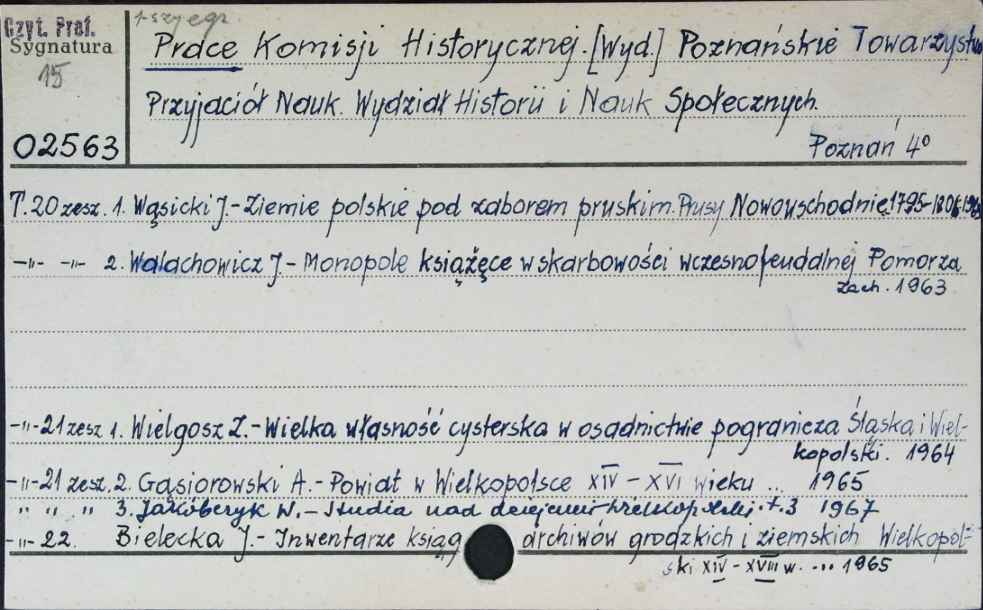 Czyt. Prof.
Sygnatura
15
02563
Prace Komisji Historycznej. [Wyd.] Poznańskie Towarzystwo
Przyjaciół Nauk. Wydział Historii i Nauk Społecznych.
Poznań 4°
T. 20 zesz. 1. Wąsicki J. - Ziemie polskie pod zaborem pruskim. Prusy Nowowschodnie 1795-1806.
-"- -"- 2. Walachowicz J. - Monopole książęce w skarbowości wczesnofeudalnej Pomorza
zach. 1963
-"- 21 zesz 1. Wielgosz Z. - Wielka własność cysterska w osadnictwie pogranicza Śląska i Wiel-
kopolski. 1964
-"- 21 zesz. 2. Gąsiorowski A. - Powiat w Wielkopolsce XIV - XVI wieku ... 1965
" " " 3. W. - Studia nad dziejami Wielkopolski. t. 3 1967
-"- 22. Bielecka J. - Inwentarze ksiąg archiwów grodzkich i ziemskich Wielkopol-
ski XIV - XVIII w. ... 1965